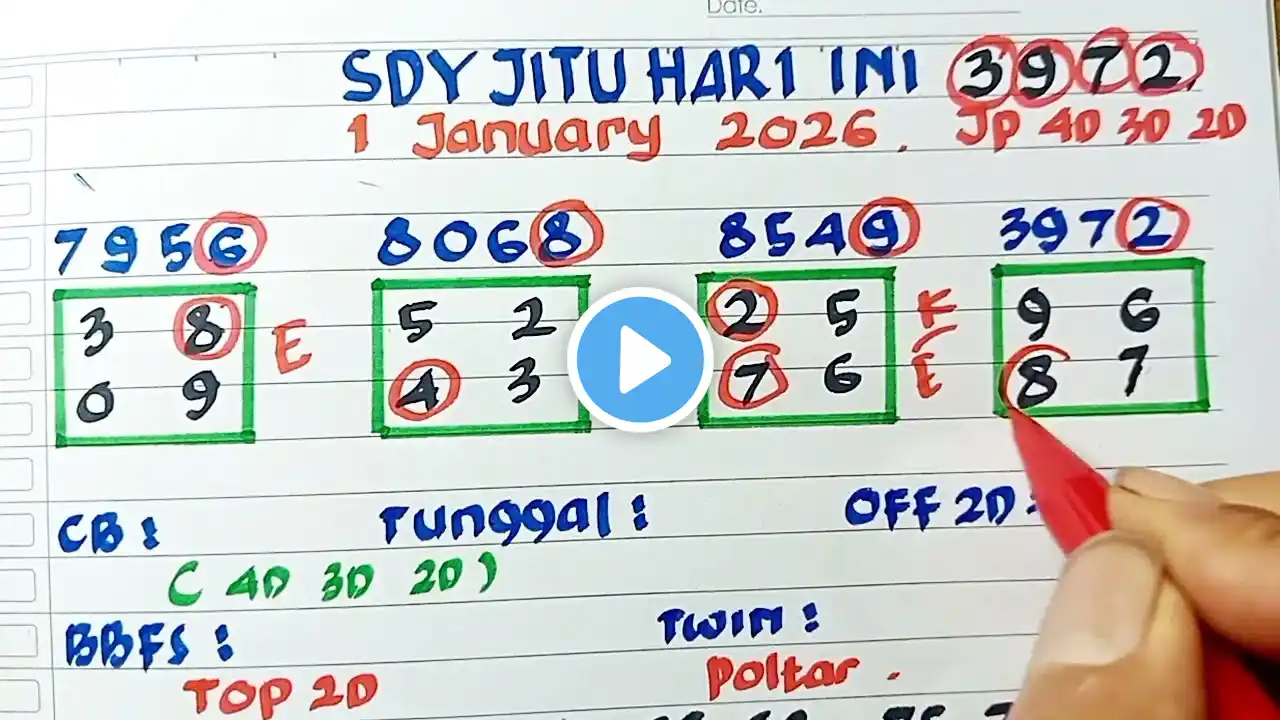 Date.
SDY JITU HARI INI 3972
1 January 2026. Jp 4D 3D 2D
7956 8068 8549 3972
3 8 5 2 2 5 K 9 6
0 9 E 4 3 7 6 E 8 7
CB: Tunggal: OFF 2D:
(4D 3D 2D)
BBFS: TWIN:
TOP 2D Poltar.